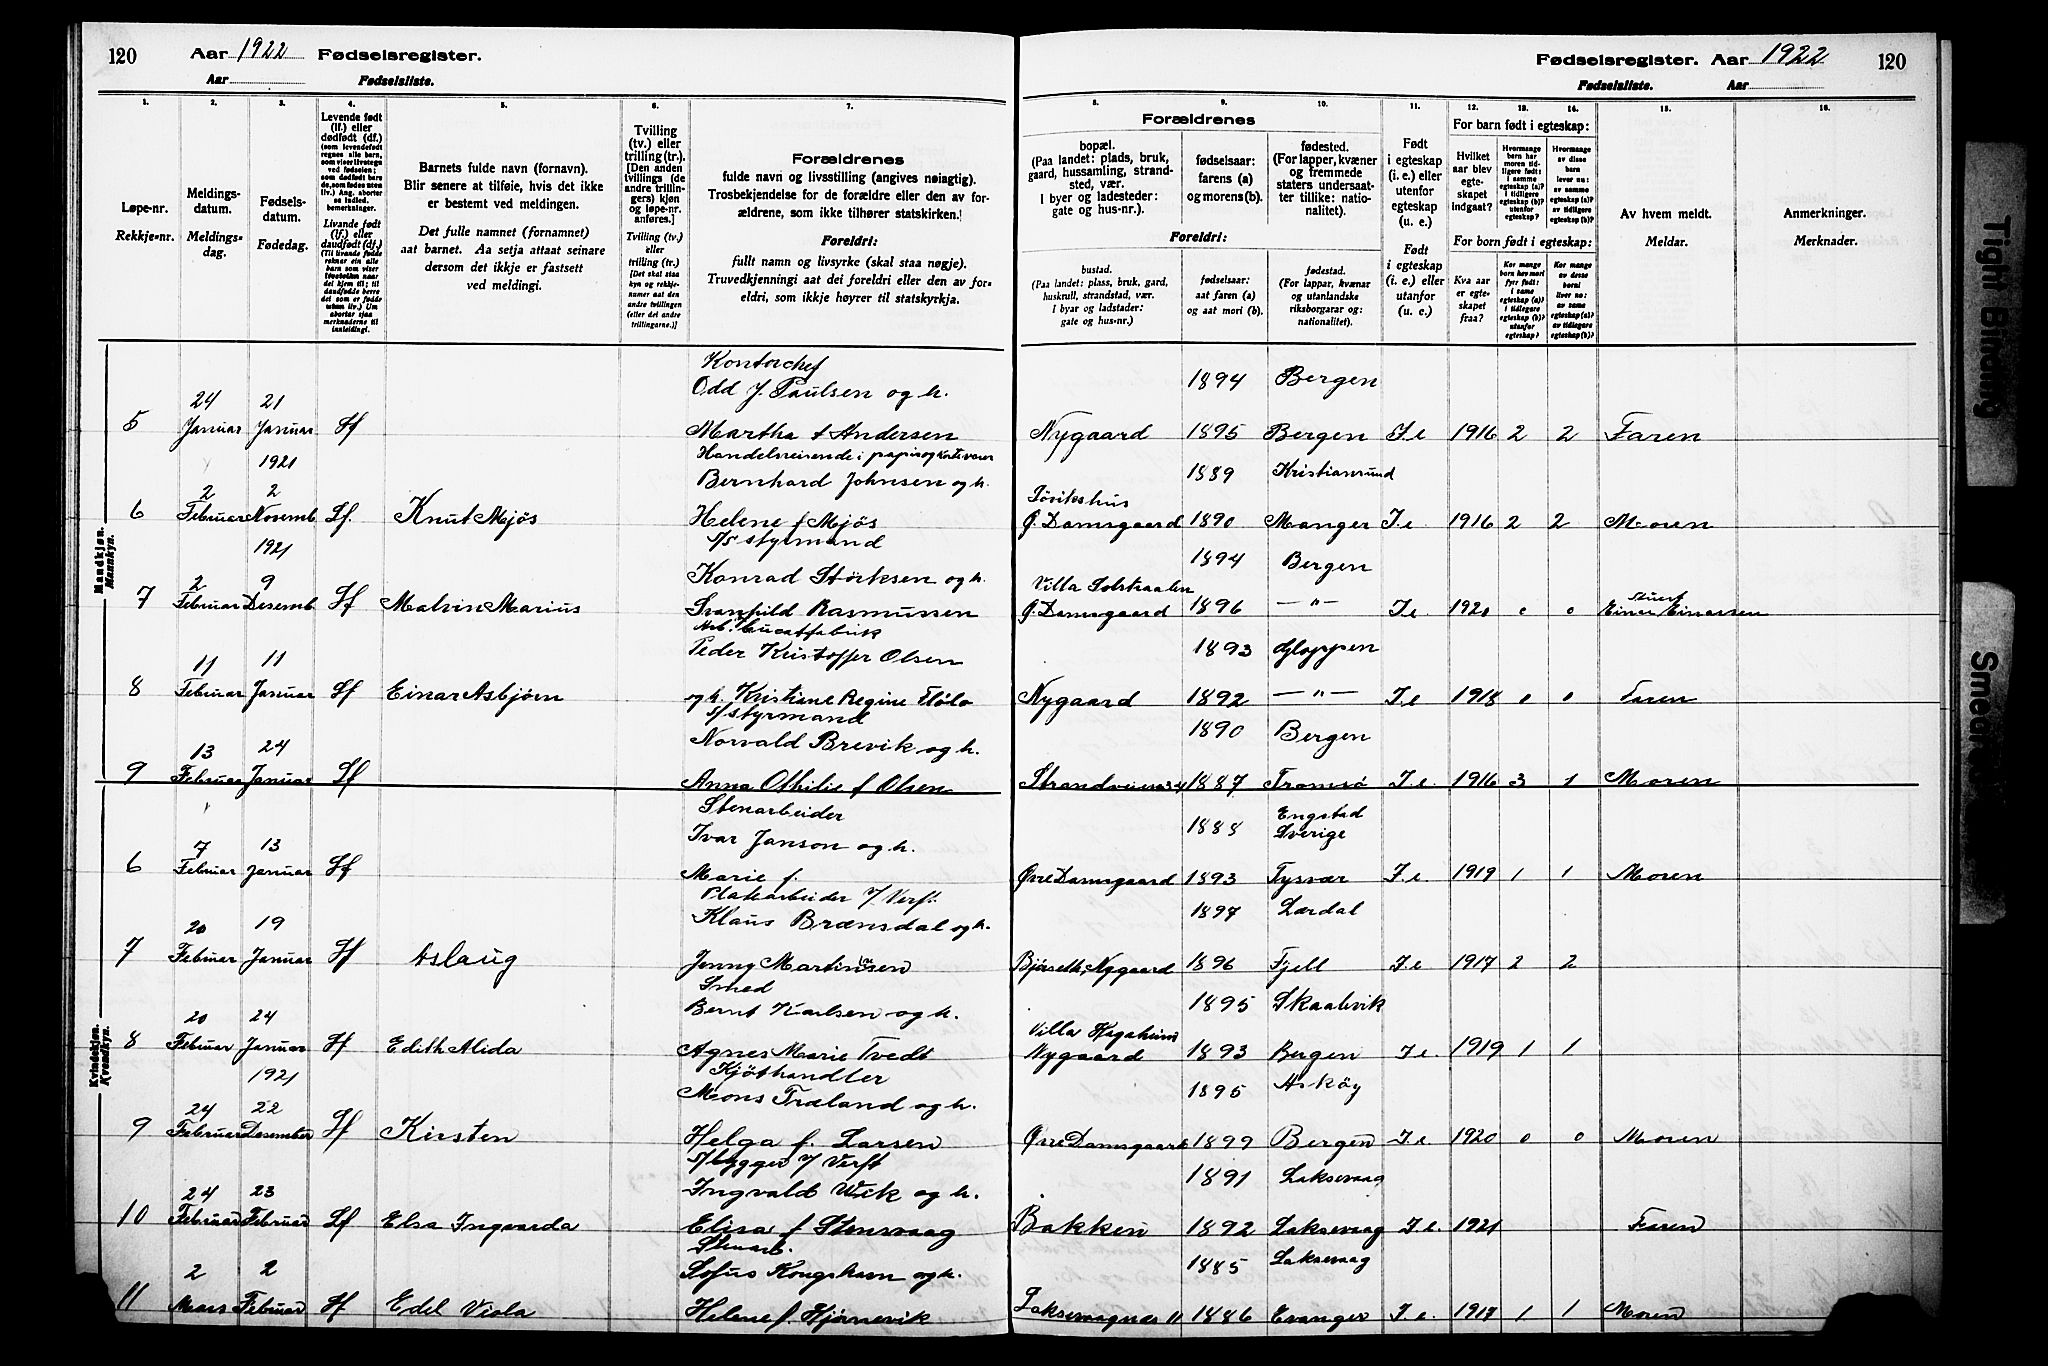 120 Aar 1922 Fødselsregister.
Aar Fødselsliste.
Fødselsregister. Aar 1922 120
Fødselsliste. Aar
1. 2. 3. 4. 5. 6. 7. 8. 9. 10. 11. 12. 13. 14. 15. 16.
Løpe-nr.
Rekkje-nr.
Meldings-
datum.
Meldings-
dag.
Fødsels-
datum.
Fødedag.
Levende født
(lf.) eller
dødfødt (df.)
Livande født
(lf.) eller
daudfødt (df.)
Barnets fulde navn (fornavn).
Blir senere at tilføie, hvis det ikke
er bestemt ved meldingen.
Det fulle namnet (fornamnet)
aat barnet. Aa setja attaat seinare
dersom det ikkje er fastsett
ved meldingi.
Tvilling
(tv.) eller
trilling (tr.).
[Den anden
tvillings (de
andre trillin-
gers) kjøn
og løpe-nr.
anføres.]
Tvilling (tv.)
eller
trilling (tr.)
[Det skal staa
kyn og rekkje-
numer aat den
andre tvillingen
(eller dei andre
trillingarne.)]
Forældrenes
fulde navn og livsstilling (angives nøiagtig).
Trosbekjendelse for de forældre eller den av for-
ældrene, som ikke tilhører statskirken.
Foreldri:
fullt namn og livsyrke (skal staa nøgje).
Truvedkjenningi aat dei foreldri eller den av for-
eldri, som ikkje høyrer til statskyrkja.
Forældrenes
bopæl.
(Paa landet: plads, bruk,
gaard, hussamling, strand-
sted, vær.
I byer og ladesteder:
gate og hus-nr.).
fødselsaar:
farens (a)
og morens (b).
fødested.
(For lapper, kvæner
og fremmede
staters undersaat-
ter tillike: natio-
nalitet).
Foreldri:
bustad.
(Paa landet: plass, bruk, gard,
huskrull, strandstad, vær.
I byar og ladstader:
gate og hus-nr.)
fødselsaar:
aat faren (a)
og aat mori (b).
fødestad.
(For lappar, kvænar
og utanlandske
riksborgarar og:
nationalitet).
Født
i egteskap
(i. e.) eller
utenfor
egteskap
(u. e.)
Født
i egteskap
(i. e.) eller
utanfor
(u. e.)
For barn født i egteskap:
Hvilket
aar blev
egte-
skapet
indgaat?
For born født i egteskap:
Kva aar
er egte-
skapet
fraa?
Av hvem meldt.
Meldar.
Anmerkninger.
Merknader.
Mandkjøn.
Mannkyn.
Kontorchef
Odd J. Paulsen og h. 1894 Bergen
24 21
5 Januar Januar Lf Martha f Andersen Nygaard 1895 Bergen I e 1916 2 2 Faren
1921 Handelsreisende i
Bernhard Johnsen og h. 1889 Kristiansund
2 2
6 Februar Novemb Lf. Knut Mjøs Helene f Mjøs Ø. Damsgaard 1890 Manger I e 1916 2 2 Moren
1921 S/S styrmand
Konrad Størksen og h. 1894 Bergen
2 9 Villa Solstraalen
7 Februar Desemb Lf Malvin Marius Svanhild Rasmussen Ø. Damsgaard 1896 —"— I e. 1920 0 0 Einar Einarsen
Peder Kristoffer Olsen 1893 Gloppen
11 11
8 Februar Januar Lf Einar Asbjørn og h. Kristiane Regine Fløto Nygaard 1892 —"— I e 1918 0 0 Faren
S/styrmand
Norvald Brevik og h. 1890 Bergen
13 24
9 Februar Januar Lf Anna Othilie f Olsen 1887 Tromsø I e. 1916 3 1 Moren
Kvindekjøn.
Kvendkyn.
Stenarbeider
Ivar Janson og h. 1888 Engstad
Sverige
7 13
6 Februar Januar Lf Marie f. Øvre Damsgaard 1893 Tysvær I e 1919 1 1 Moren
Platearbeider / Verft
Klaus Brænsdal og h. 1897 Lærdal
20 19
7 Februar Januar Lf Aslaug Jenny Martinsen Bjørseth, Nygaard 1896 Fjell I e 1917 2 2
Smed
Bernt Karlsen og h. 1895 Skaalevik
20 24 Villa Hagaheim
8 Februar Januar Lf Edith Alida Agnes Marie Tvedt Nygaard 1893 Bergen I e. 1919 1 1
1921 Kjøthandler
Mons Træland og h. 1895 Askøy
24 22
9 Februar Desember Lf Kirsten Helga f. Larsen Øvre Damsgaard 1899 Bergen I e. 1920 0 0 Moren
S/bygger / Verft
Ingvald Wik og h. 1891 Laksevaag
24 23
10 Februar Februar Lf Elsa Ingvarda Elisa f Stensvaag Bakken 1892 Laksevaag I e. 1921 Faren
Stenarb.
Sofus Kongshavn og h. 1885 Laksevaag
2 2
11 Mars Februar Lf Edel Viola Helene f. Hjørnevik Laksevaagnes 11 1886 Evanger I e. 1917 1 1 Moren
Tight Binding